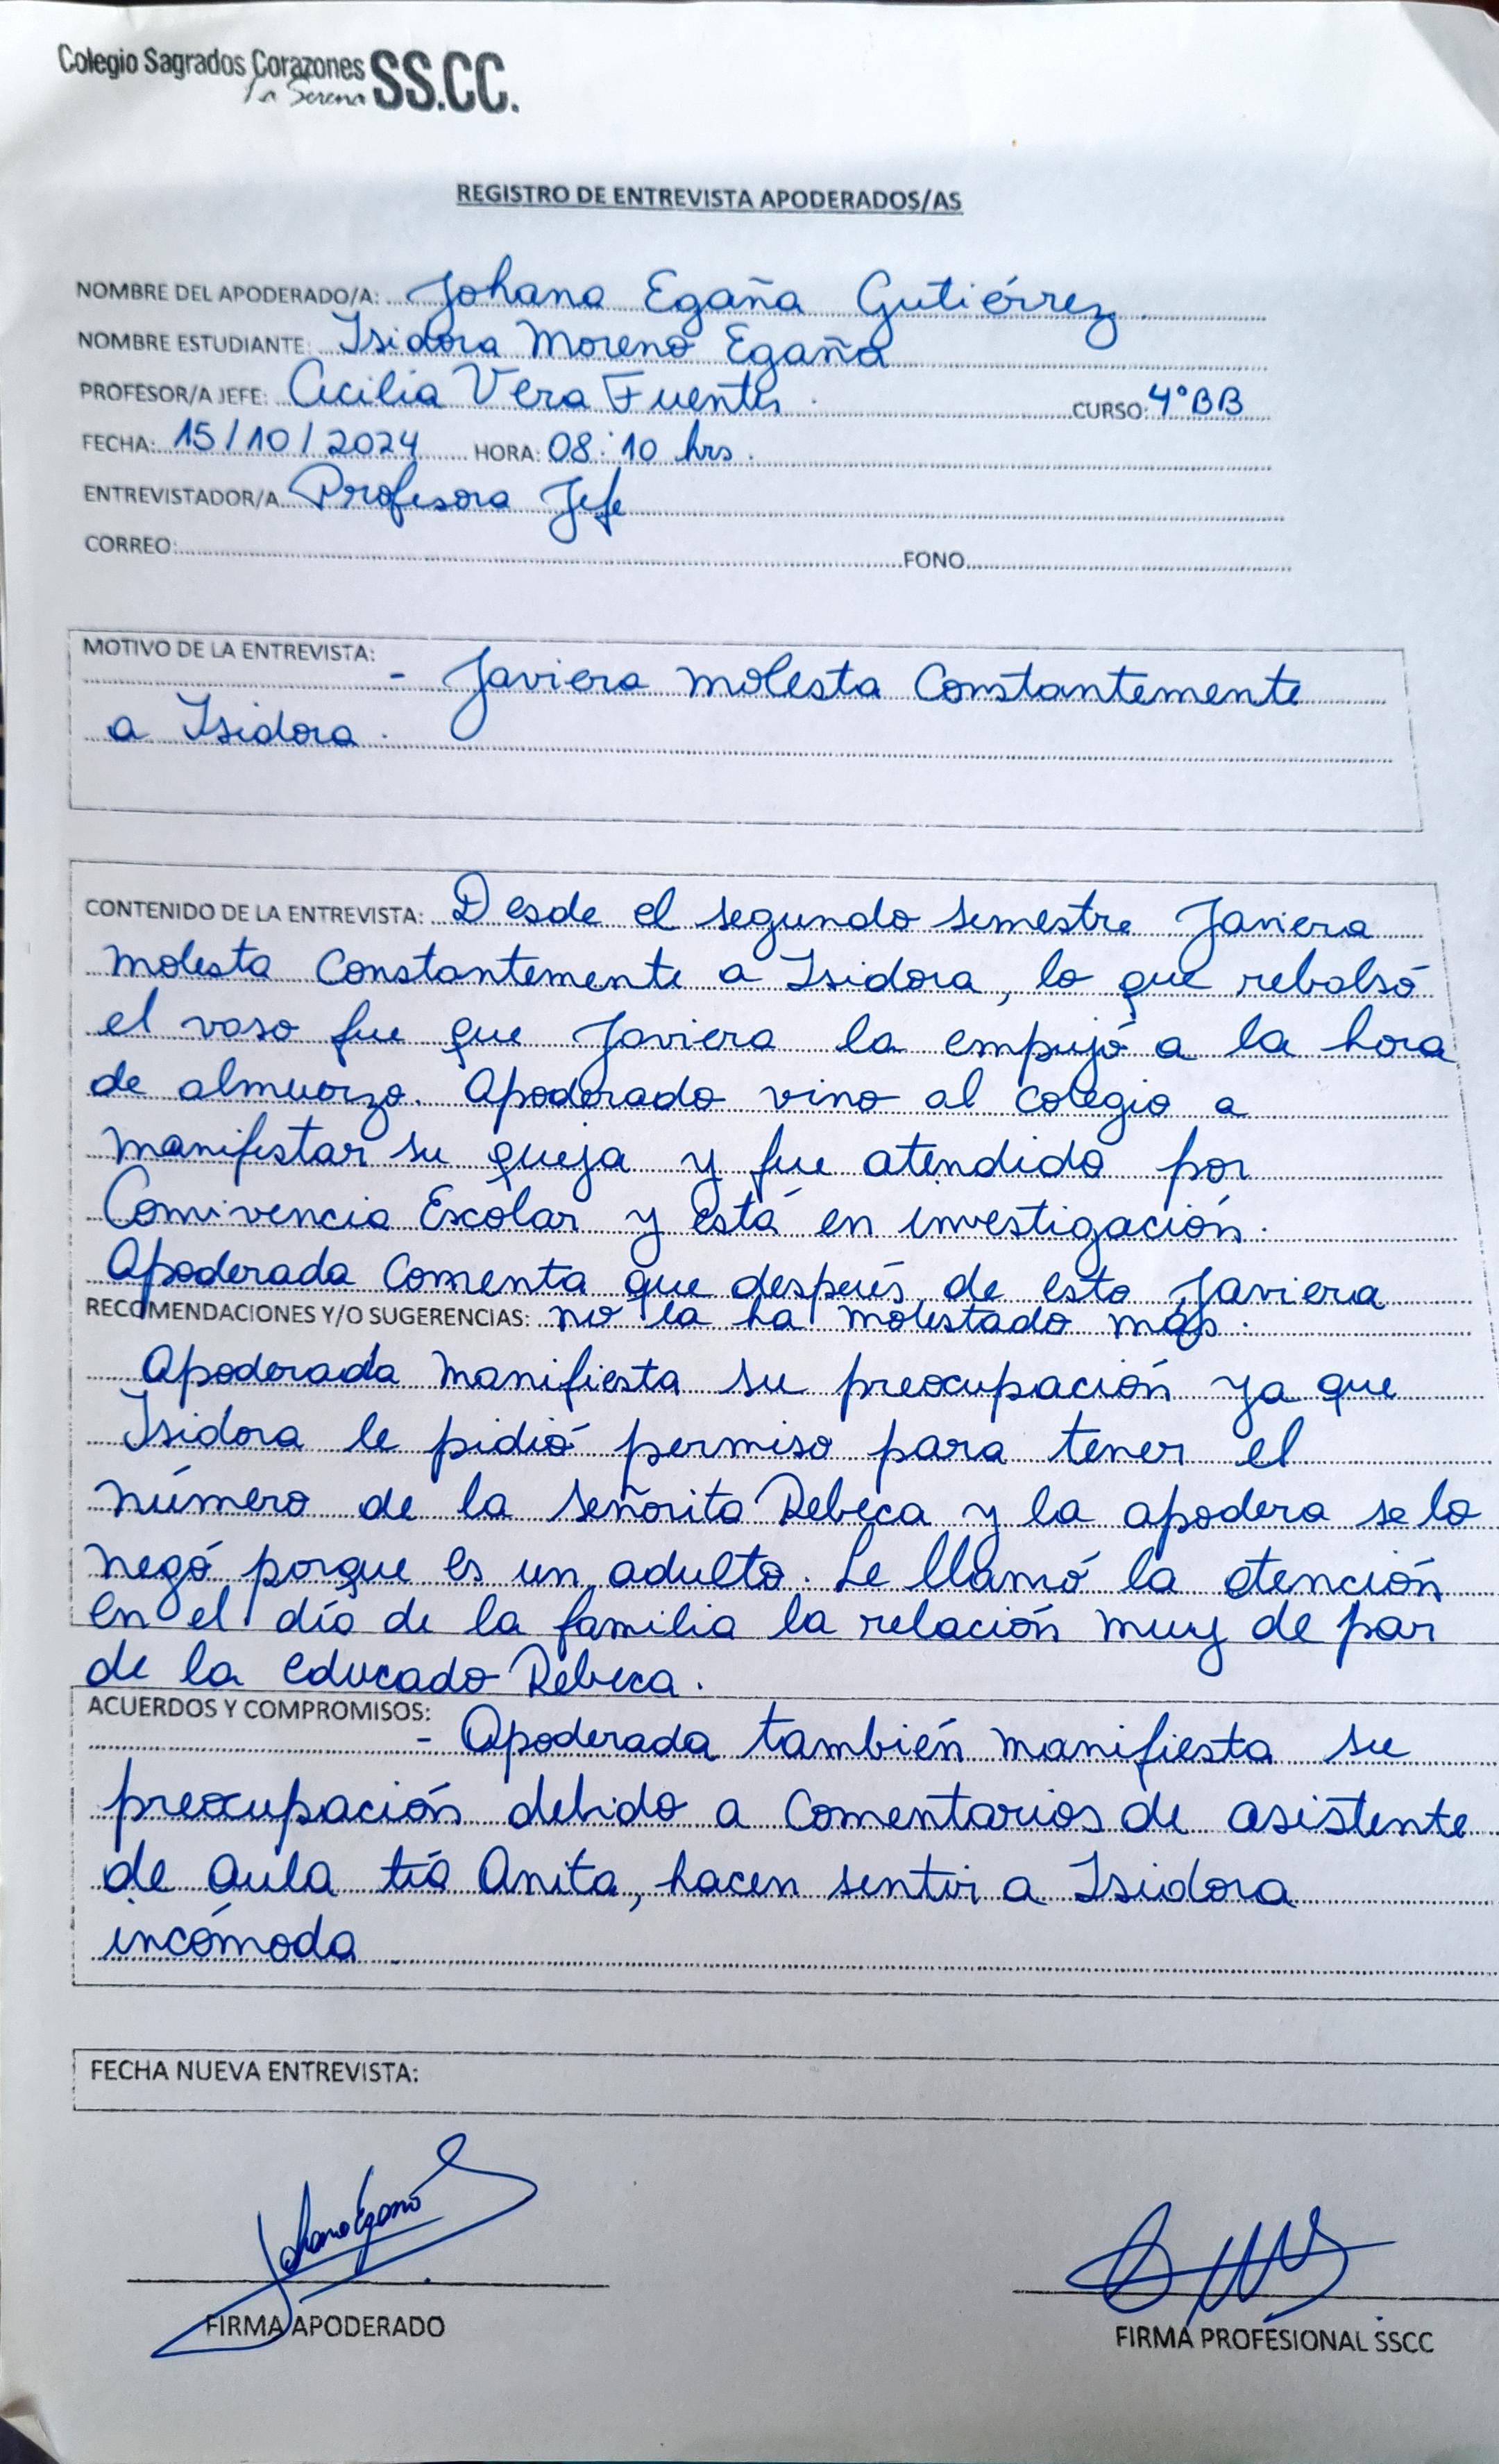 Colegio Sagrados Corazones SS.CC.
La Serena
REGISTRO DE ENTREVISTA APODERADOS/AS
NOMBRE DEL APODERADO/A: Johana Egaña Gutiérrez
NOMBRE ESTUDIANTE: Isidora Moreno Egaña
PROFESOR/A JEFE: Cecilia Vera Fuentes. CURSO: 4°BB
FECHA: 15/10/2024 HORA: 08:10 hrs.
ENTREVISTADOR/A Profesora Jefe
CORREO: FONO
MOTIVO DE LA ENTREVISTA: - Javiera molesta Constantemente
a Isidora.
CONTENIDO DE LA ENTREVISTA: Desde el segundo semestre Javiera
molesta Constantemente a Isidora, lo que rebalsó
el vaso fue que Javiera la empujó a la hora
de almuerzo. Apoderado vino al colegio a
manifestar su queja y fue atendido por
Convivencia Escolar y está en investigación.
Apoderada Comenta que después de esto Javiera
RECOMENDACIONES Y/O SUGERENCIAS: no la ha molestado más.
Apoderada manifiesta su preocupación ya que
Isidora le pidió permiso para tener el
número de la señorita Rebeca y la apodera se lo
negó porque es un adulto. Le llamó la atención
en el día de la familia la relación muy de par
de la educado Rebeca.
ACUERDOS Y COMPROMISOS: - Apoderada también manifiesta su
preocupación debido a Comentarios de asistente
de aula tía Anita, hacen sentir a Isidora
incómoda
FECHA NUEVA ENTREVISTA:
Johana Egaña
FIRMA APODERADO
FIRMA PROFESIONAL SSCC